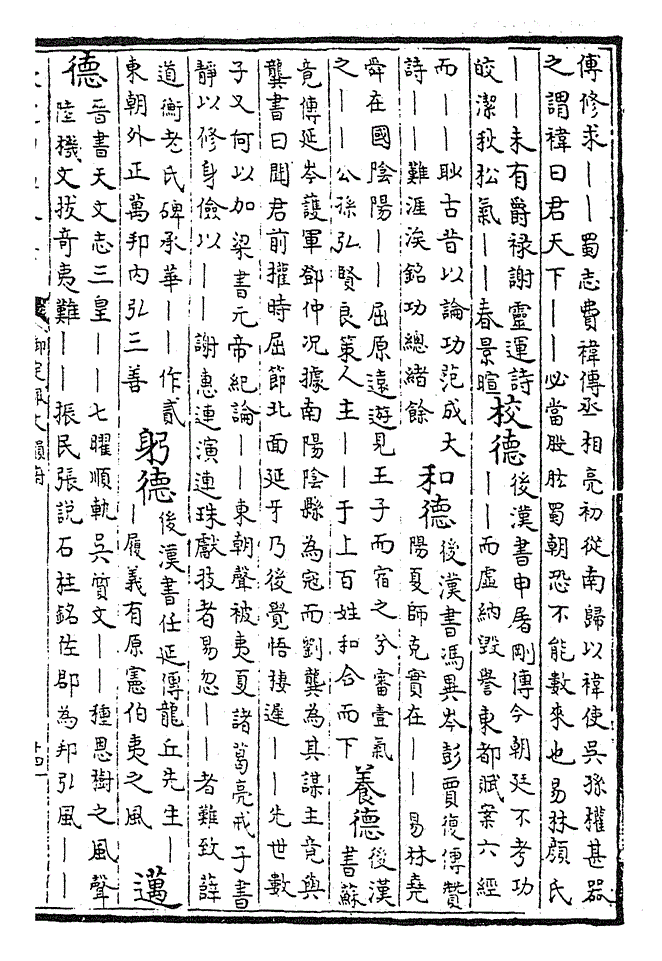 傳修求丨丨蜀志費禕傳丞相亮初從南歸以禕使吳孫權甚器
之謂禕曰君天下丨丨必當股肱蜀朝恐不能數來也易林顏氏
丨丨未有爵祿謝靈運詩
皎潔秋松氣丨丨春景暄
校德
後漢書申屠剛傳今朝廷不考功
丨丨而虛納毀譽東都賦案六經
而丨丨眇古昔以論功范成大
詩丨丨難涯涘銘功總緒餘
和德
後漢書馮異岑彭賈復傳贊
陽夏師克實在丨丨易林堯
舜在國陰陽丨丨屈原遠遊見王子而宿之兮審壹氣
之丨丨公孫弘賢良策人主丨丨于上百姓和合而下
養德
後漢
書蘇
竟傳延岑護軍鄧仲況據南陽陰縣為寇而劉龔為其謀主竟與
龔書曰聞君前權時屈節北面延牙乃後覺悟棲遲丨丨先世數
子又何以加梁書元帝紀論丨丨東朝聲被夷夏諸葛亮戒子書
靜以修身儉以丨丨謝惠連演連珠獻技者易忽丨丨者難致薛
道衡老氏碑承華丨丨作貳
東朝外正萬邦內弘三善
躬德
後漢書任延傳龍丘先生丨
丨履義有原憲伯夷之風
邁
德
晉書天文志三皇丨丨七曜順軌吳質文丨丨種恩樹之風聲
陸機文拔奇夷難丨丨振民張說石柱銘佐郡為邦弘風丨丨